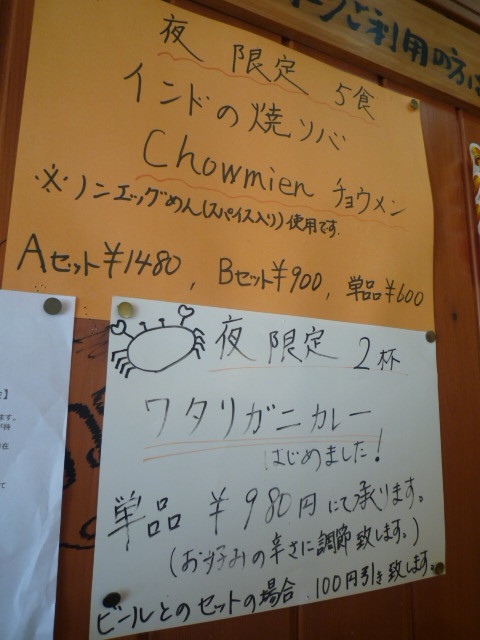 ご利用の方は
夜 限定 5食
インドの焼ソバ
Chowmien チョウメン
※ノンエッグめん(スパイス入り)使用です.
Aセット¥1480, Bセット¥900, 単品¥600
夜 限定 2杯
ワタリガニカレー
はじめました!
単品 ¥980円にて承ります。
(お好みの辛さに調節致します。)
ビールとのセットの場合、100円引き致します。